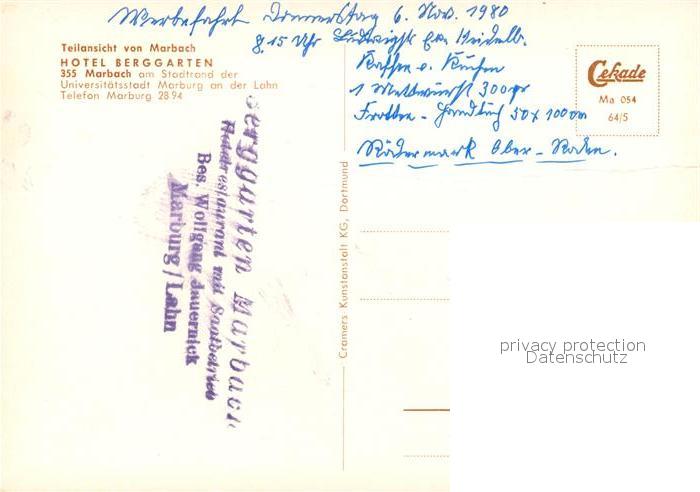 Werbefahrt Donnerstag 6. Nov. 1980
8.15 Uhr Ludwigstr Heidelb.
Kaffee u. Kuchen
1 Mettwurst 300 gr
Frottee-Handtuch 50 x 100 cm
Rödermark Ober-Roden.
Teilansicht von Marbach
HOTEL BERGGARTEN
355 Marbach am Stadtrand der
Universitätsstadt Marburg an der Lahn
Telefon Marburg 28 94
Cekade
Ma 054
64/5
Berggarten Marbach
Hotelrestaurant mit Saalbetrieb
Bes. Wolfgang Jauernick
Marburg / Lahn
Cramers Kunstanstalt KG, Dortmund
privacy protection
Datenschutz